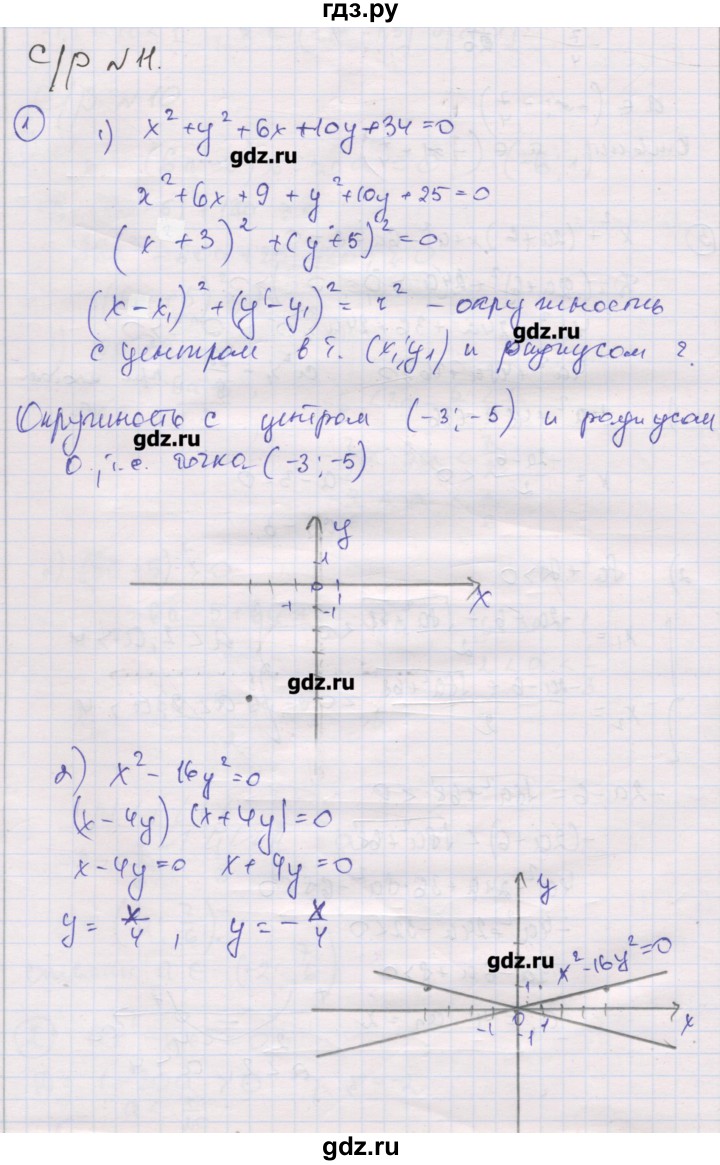 гдз.ру
С/р №11.
1
1) x² + y² + 6x + 10y + 34 = 0
gdz.ru
x² + 6x + 9 + y² + 10y + 25 = 0
(x + 3)² + (y + 5)² = 0
(x - x₁)² + (y - y₁)² = r² - окружность
gdz.ru
с центром в т. (x₁; y₁) и радиусом r.
Окружность с центром (-3; -5) и радиусом
gdz.ru
0, т.е. точка (-3; -5)
y
1
0
-1
1
-1
x
gdz.ru
2) x² - 16y² = 0
(x - 4y) (x + 4y) = 0
x - 4y = 0 x + 4y = 0
y = x/4 , y = - x/4
y
x² - 16y² = 0
gdz.ru
1
0
-1
1
-1
x
gdz.ru